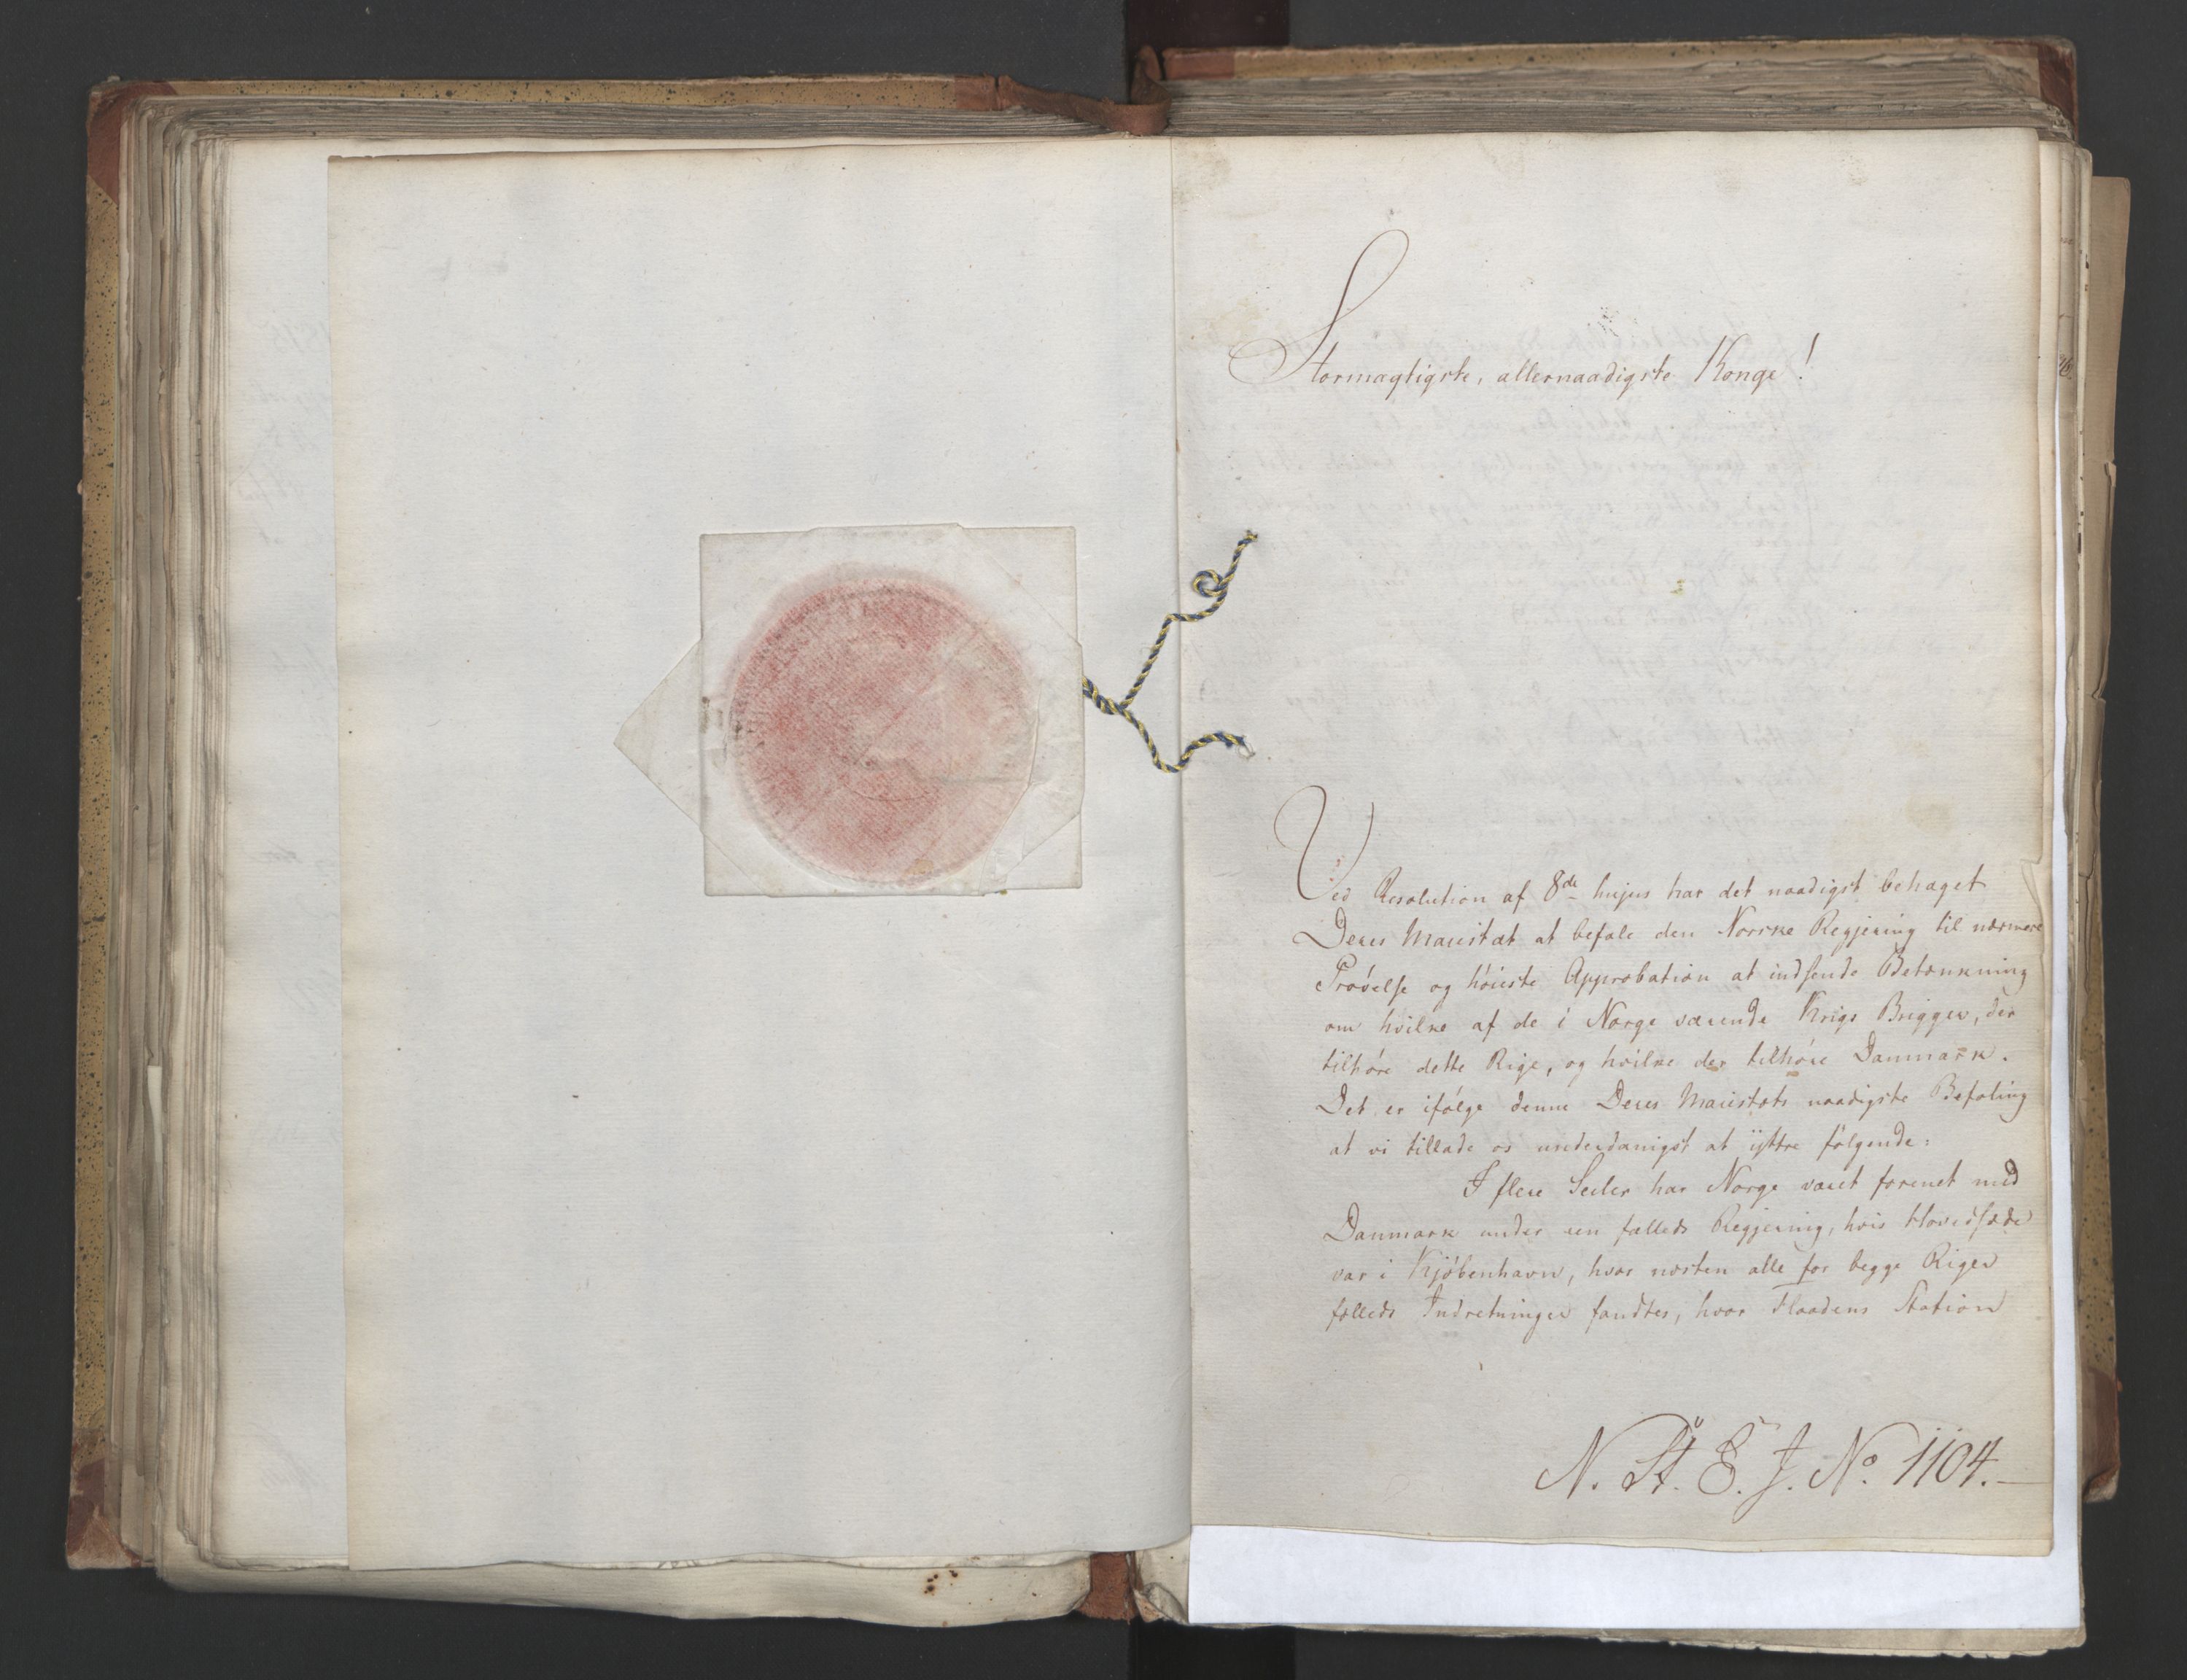 Stormægtigste, allernaadigste Konge!
Ved Resolution af 8de hujus har det naadigst behaget
Deres Maiestæt at befale den Norske Regjering til nærmere
Prövelse og höieste Approbation at indsende Betænkning
om hvilke af de i Norge værende Krigs Brigger, der
tilhöre dette Rige, og hvilke der tilhöre Danmark.
Det er ifölge denne Deres Maiestæts naadigste Befaling
at vi tillade os underdanigst at ÿttre fölgende:
I flere Secler har Norge været forenet med
Danmark under een fælleds Regjering, hvis Hovedsæde
var i Kjöbenhavn, hvor næsten alle for begge Riger
fælleds Indretninger fandtes, hvor Flaadens Station
N. St. S. J. No. 1104.